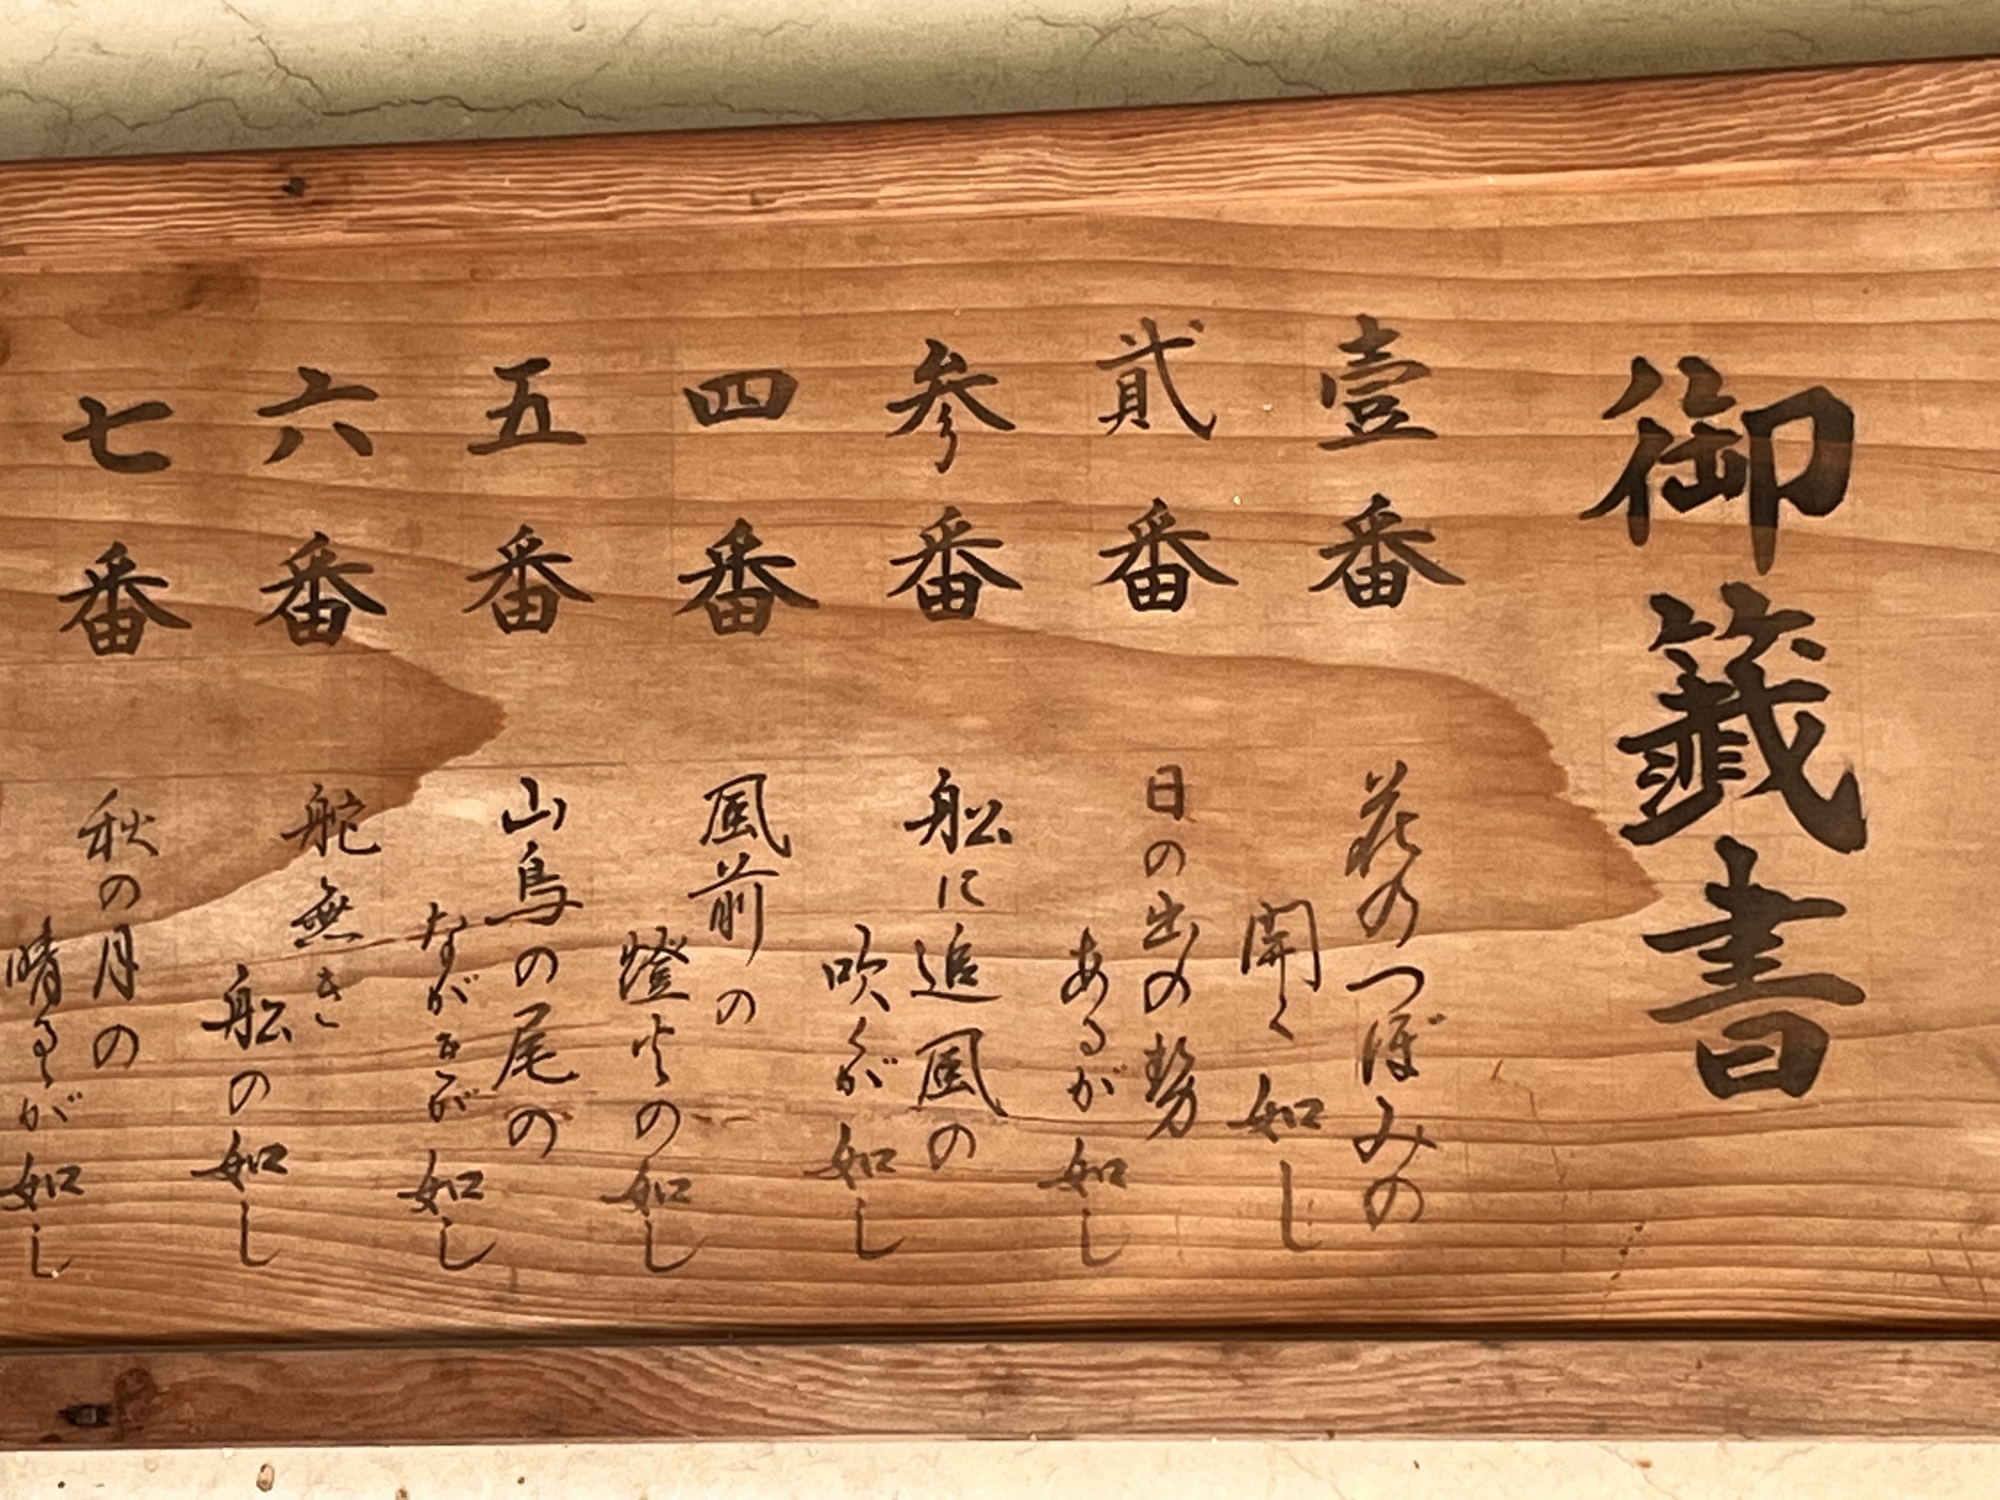 御籤書
壹番
花のつぼみの
開く如し
貳番
日の出の勢
あるが如し
参番
船に追風の
吹くが如し
四番
風前の
燈火の如し
五番
山鳥の尾の
ながきが如し
六番
舵無き
船の如し
七番
秋の月の
晴るゝが如し